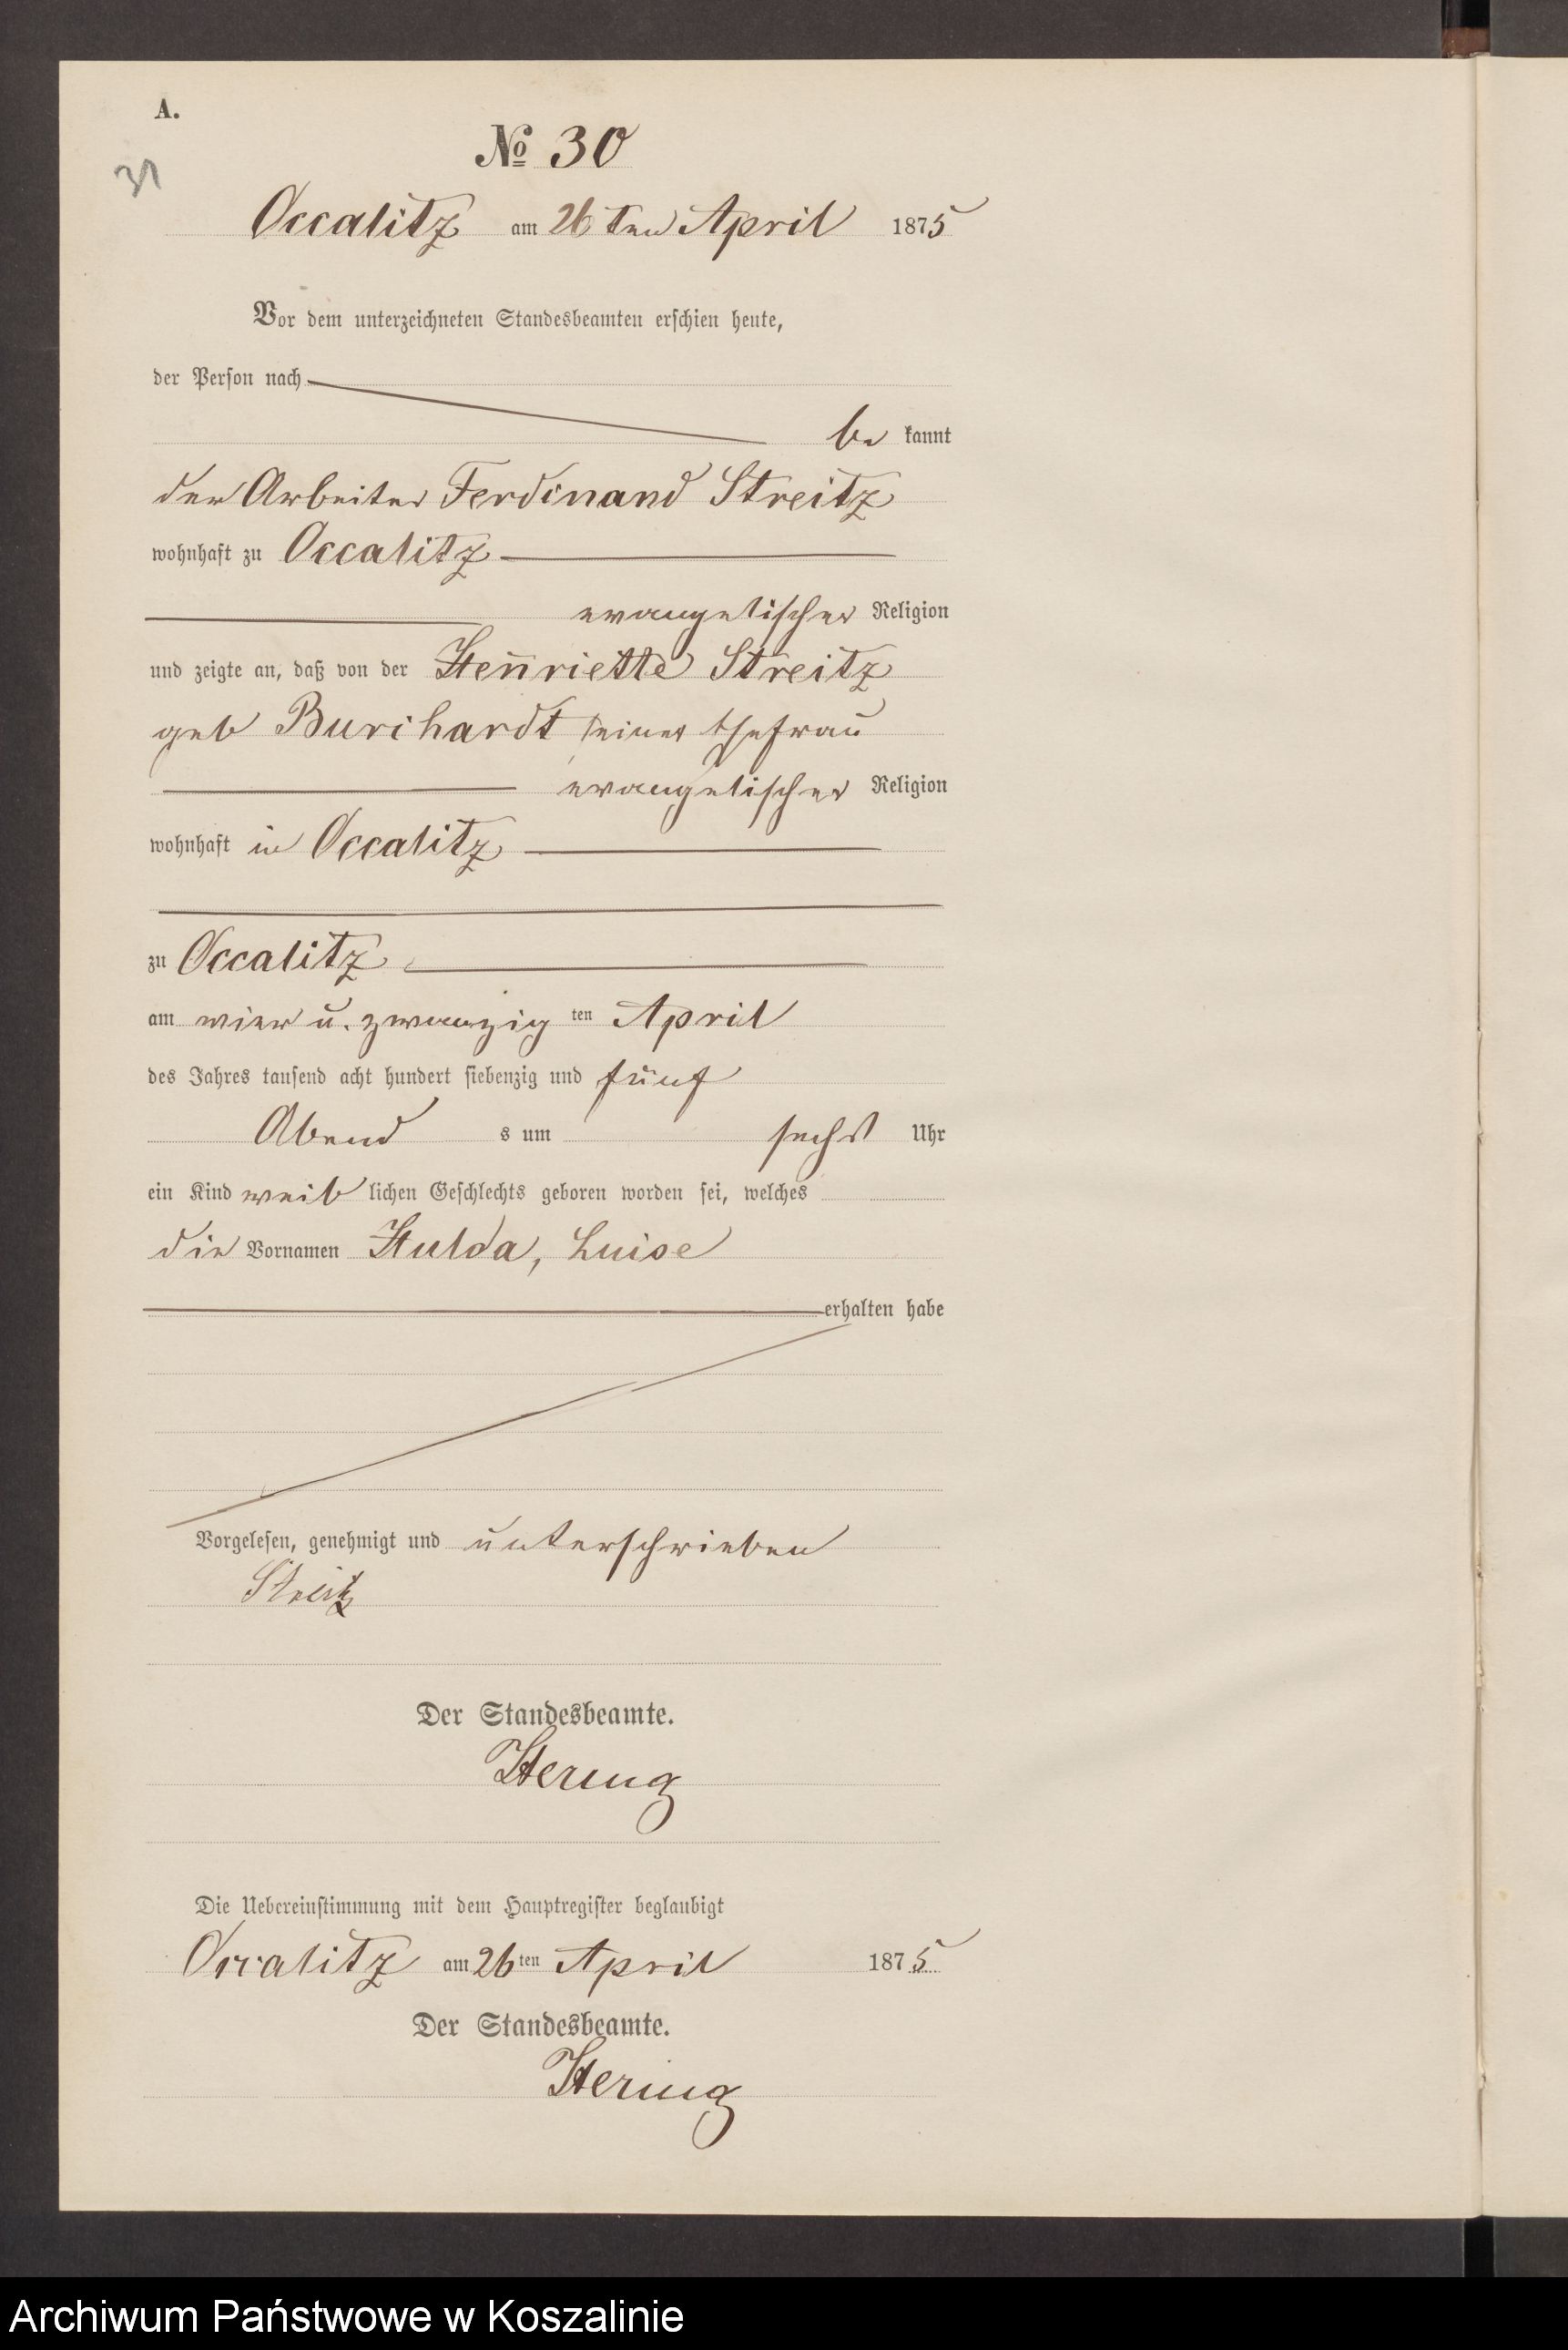 A.
31
№ 30
Occalitz am 26 ten April 1875
Vor dem unterzeichneten Standesbeamten erschien heute,
der Person nach
be kannt
der Arbeiter Ferdinand Streitz
wohnhaft zu Occalitz
evangelischer Religion
und zeigte an, daß von der Henriette Streitz
geb Burchardt seiner Ehefrau
evangelischer Religion
wohnhaft in Occalitz
zu Occalitz
am vier u. zwanzig ten April
des Jahres tausend acht hundert siebenzig und fünf
Abend s um sechs Uhr
ein Kind weib lichen Geschlechts geboren worden sei, welches
die Vornamen Hulda, Luise
erhalten habe
Vorgelesen, genehmigt und unterschrieben
Streitz
Der Standesbeamte.
Hering
Die Uebereinstimmung mit dem Hauptregister beglaubigt
Occalitz am 26 ten April 1875
Der Standesbeamte.
Hering
Archiwum Państwowe w Koszalinie